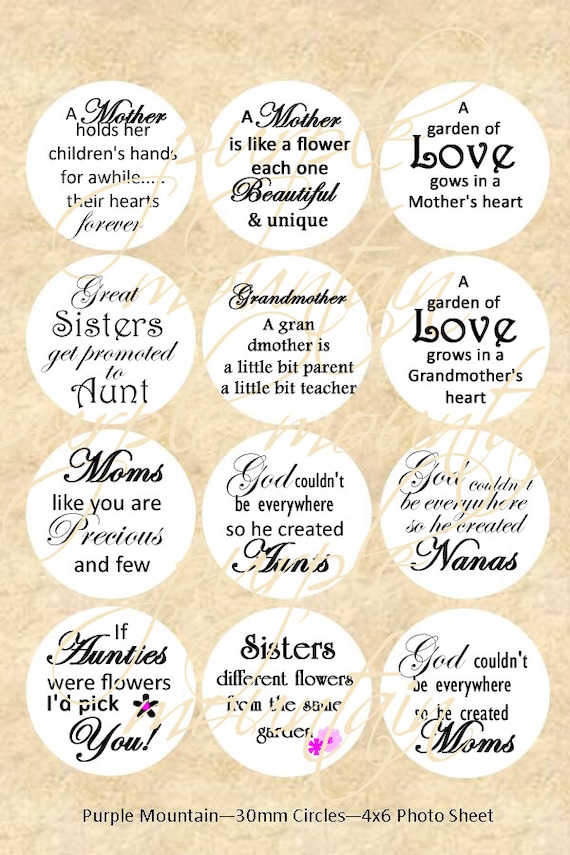 A Mother
holds her
children's hands
for awhile.....
their hearts
forever
A Mother
is like a flower
each one
Beautiful
& unique
A
garden of
Love
gows in a
Mother's heart
Great
Sisters
get promoted
to
Aunt
Grandmother
A gran
dmother is
a little bit parent
a little bit teacher
A
garden of
Love
grows in a
Grandmother's
heart
Moms
like you are
Precious
and few
God couldn't
be everywhere
so he created
Aunts
God couldn't
be everywhere
so he created
Nanas
If
Aunties
were flowers
I'd pick
You!
Sisters
different flowers
from the same
garden
God couldn't
be everywhere
so he created
Moms
Purple Mountain—30mm Circles—4x6 Photo Sheet
purple
Mountain
purple mounty
purple
Mountain